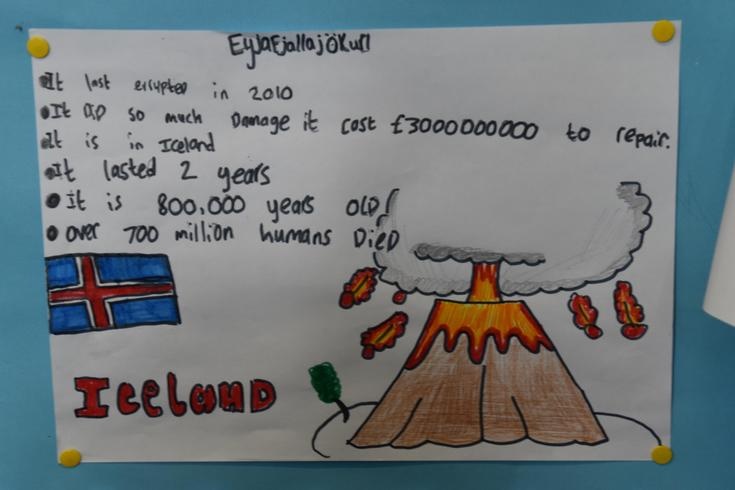 EyjaFjallajöKull
It last errupted in 2010
It DiD so much Damage it cost £3000000000 to repair.
It is in Iceland
It lasted 2 years
It is 800,000 years OlD
over 700 million humans DieD
IcelanD